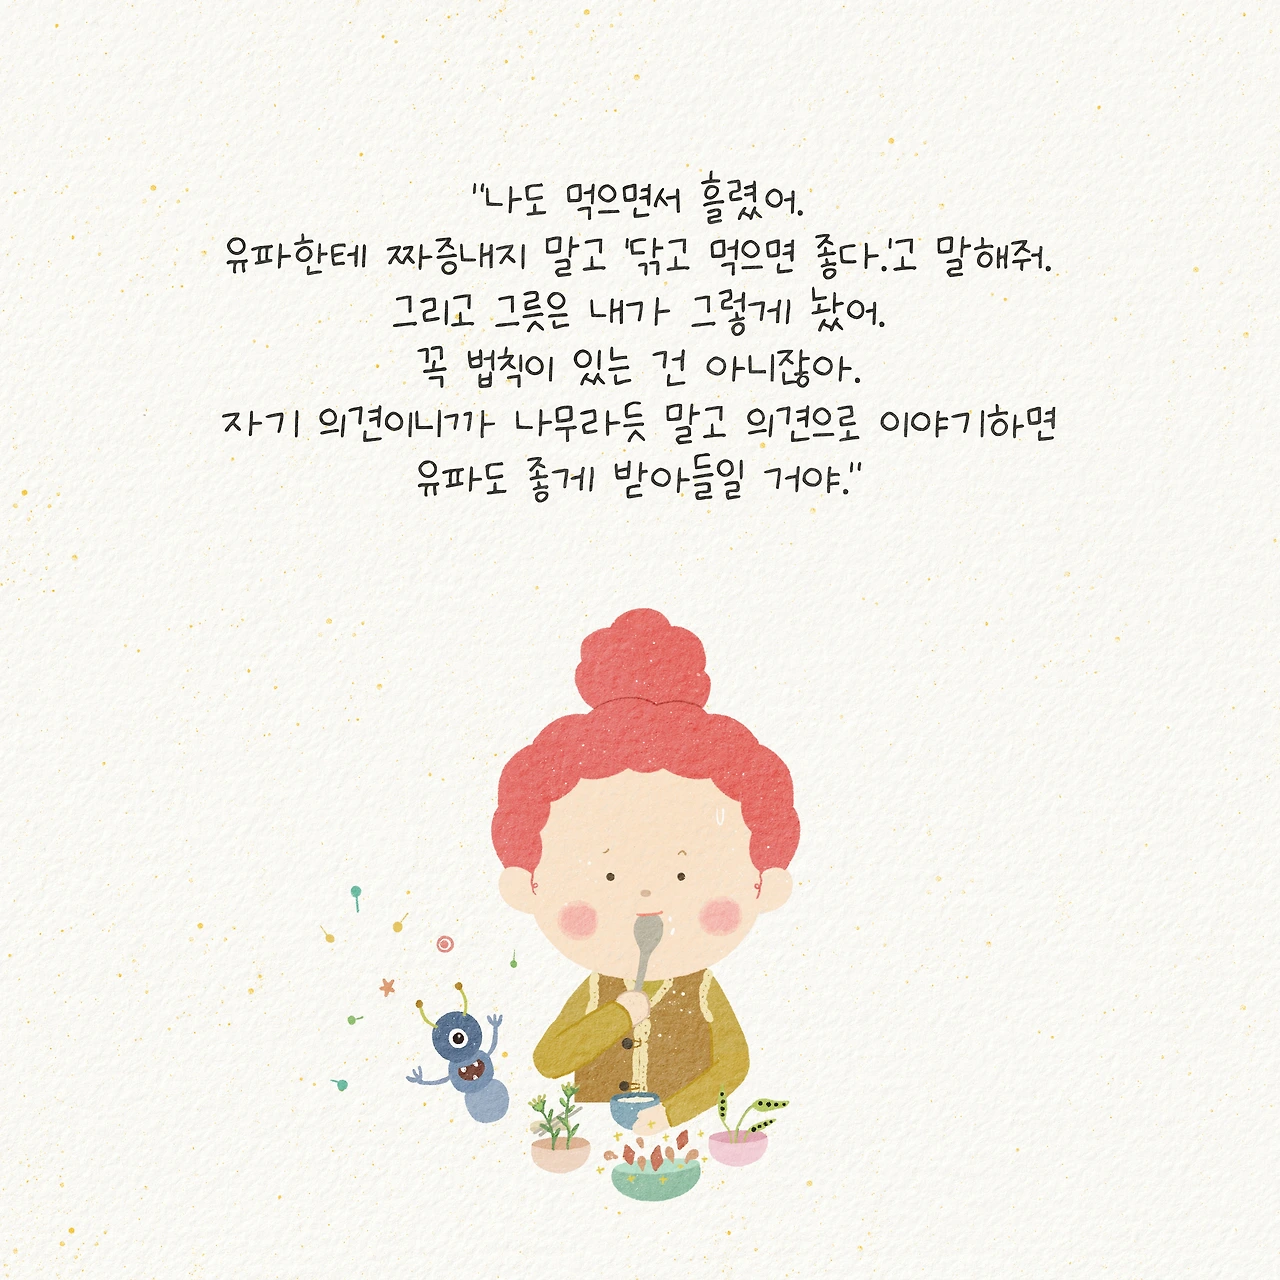 "나도 먹으면서 흘렸어.
유파한테 짜증내지 말고 '닦고 먹으면 좋다.'고 말해줘.
그리고 그릇은 내가 그렇게 놨어.
꼭 법칙이 있는 건 아니잖아.
자기 의견이니까 나무라듯 말고 의견으로 이야기하면
유파도 좋게 받아들일 거야."